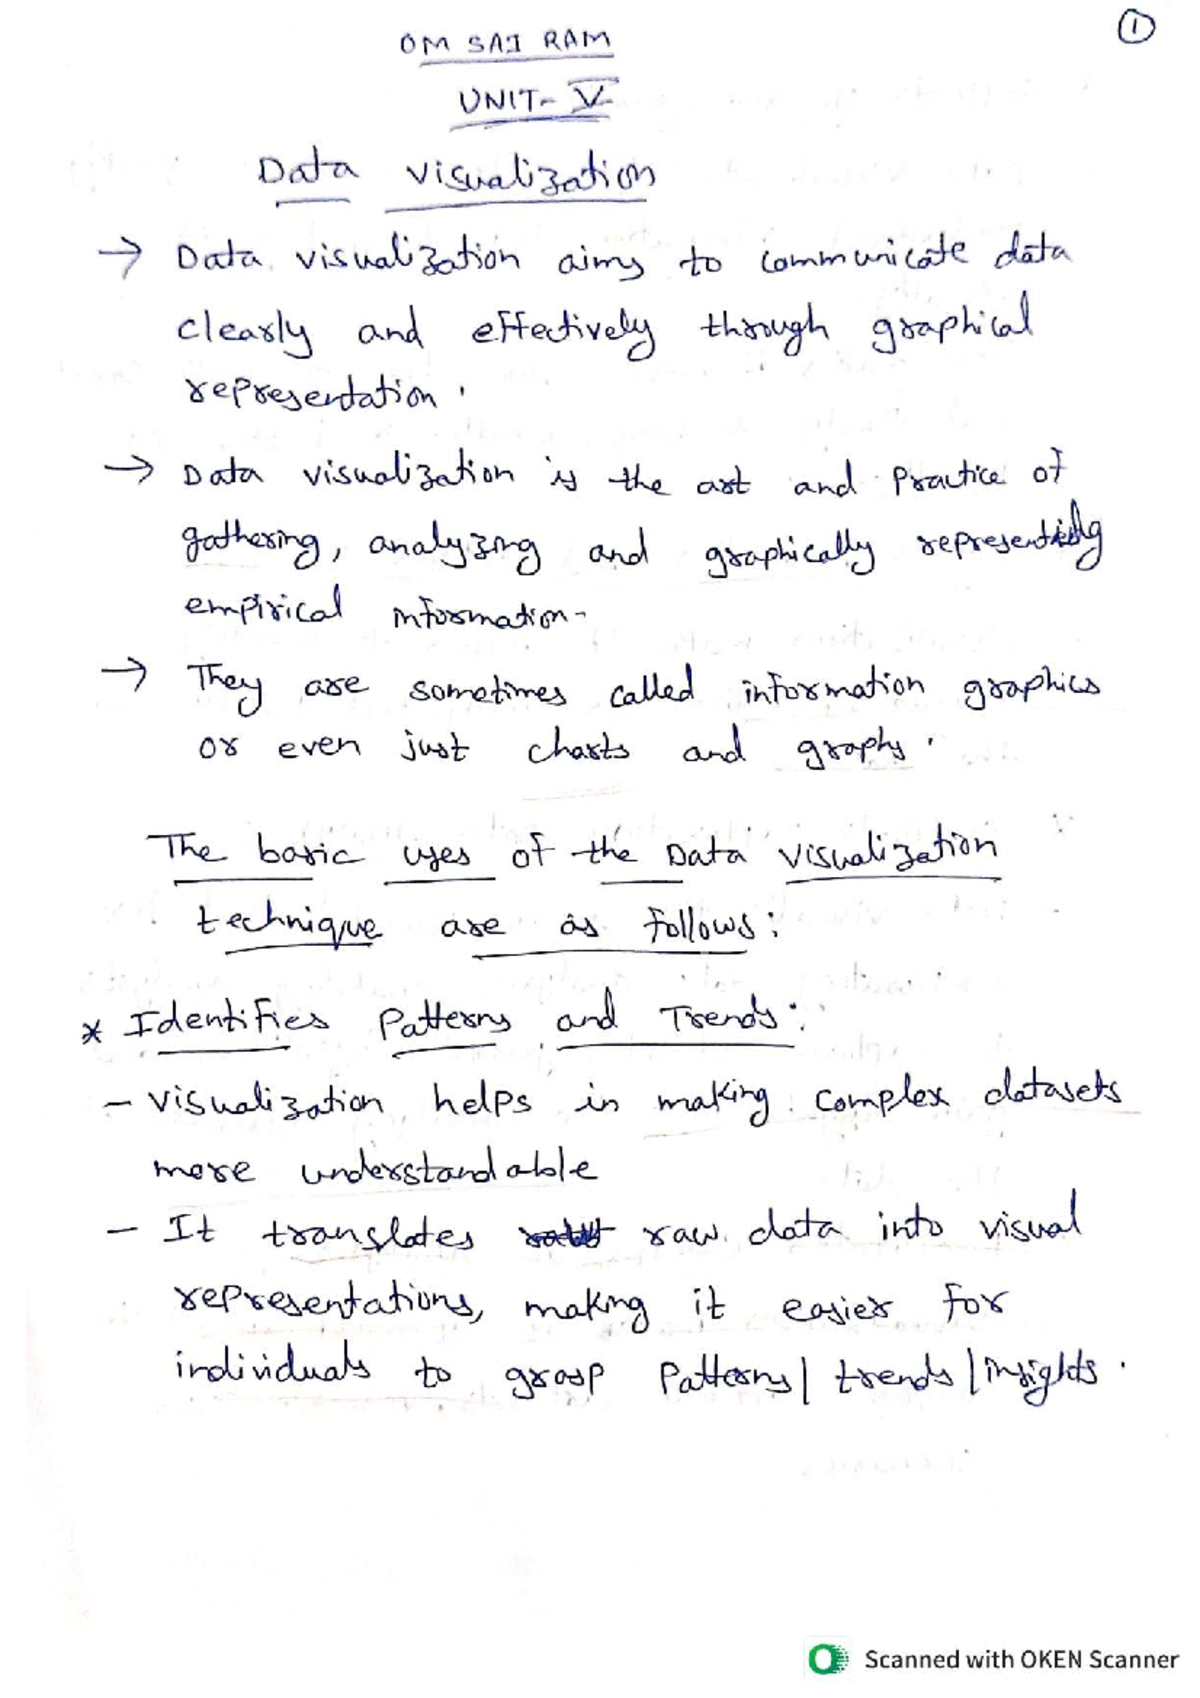 1
OM SAI RAM
UNIT- V
Data visualization
→ Data visualization aims to communicate data
clearly and effectively through graphical
representation.
→ Data visualization is the art and Practice of
gathering, analyzing and graphically representing
empirical information.
→ They are sometimes called information graphics
or even just charts and graphs.
The basic uses of the Data visualization
technique are as follows:
* Identifies Patterns and Trends:
- visualization helps in making complex datasets
more understandable
- It translates raw data into visual
representations, making it easier for
individuals to grasp Patterns/ trends/insights.
Scanned with OKEN Scanner